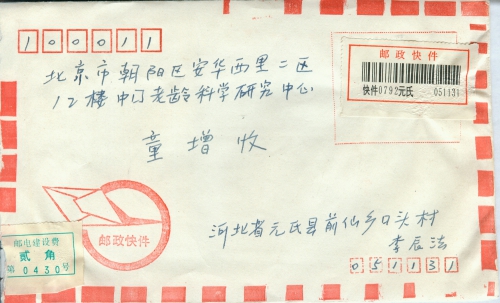 100011
北京市朝阳区安华西里二区
12楼中国老龄科学研究中心
童增收
邮政快件
快件0792元氏 051131
邮政快件
邮电建设费
贰角
第0430号
河北省元氏县前仙乡口头村
李辰法
051131